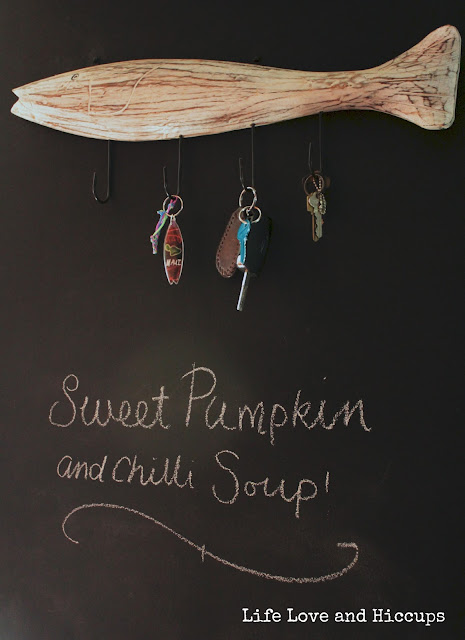 Sweet Pumpkin
and chilli Soup!
Life Love and Hiccups